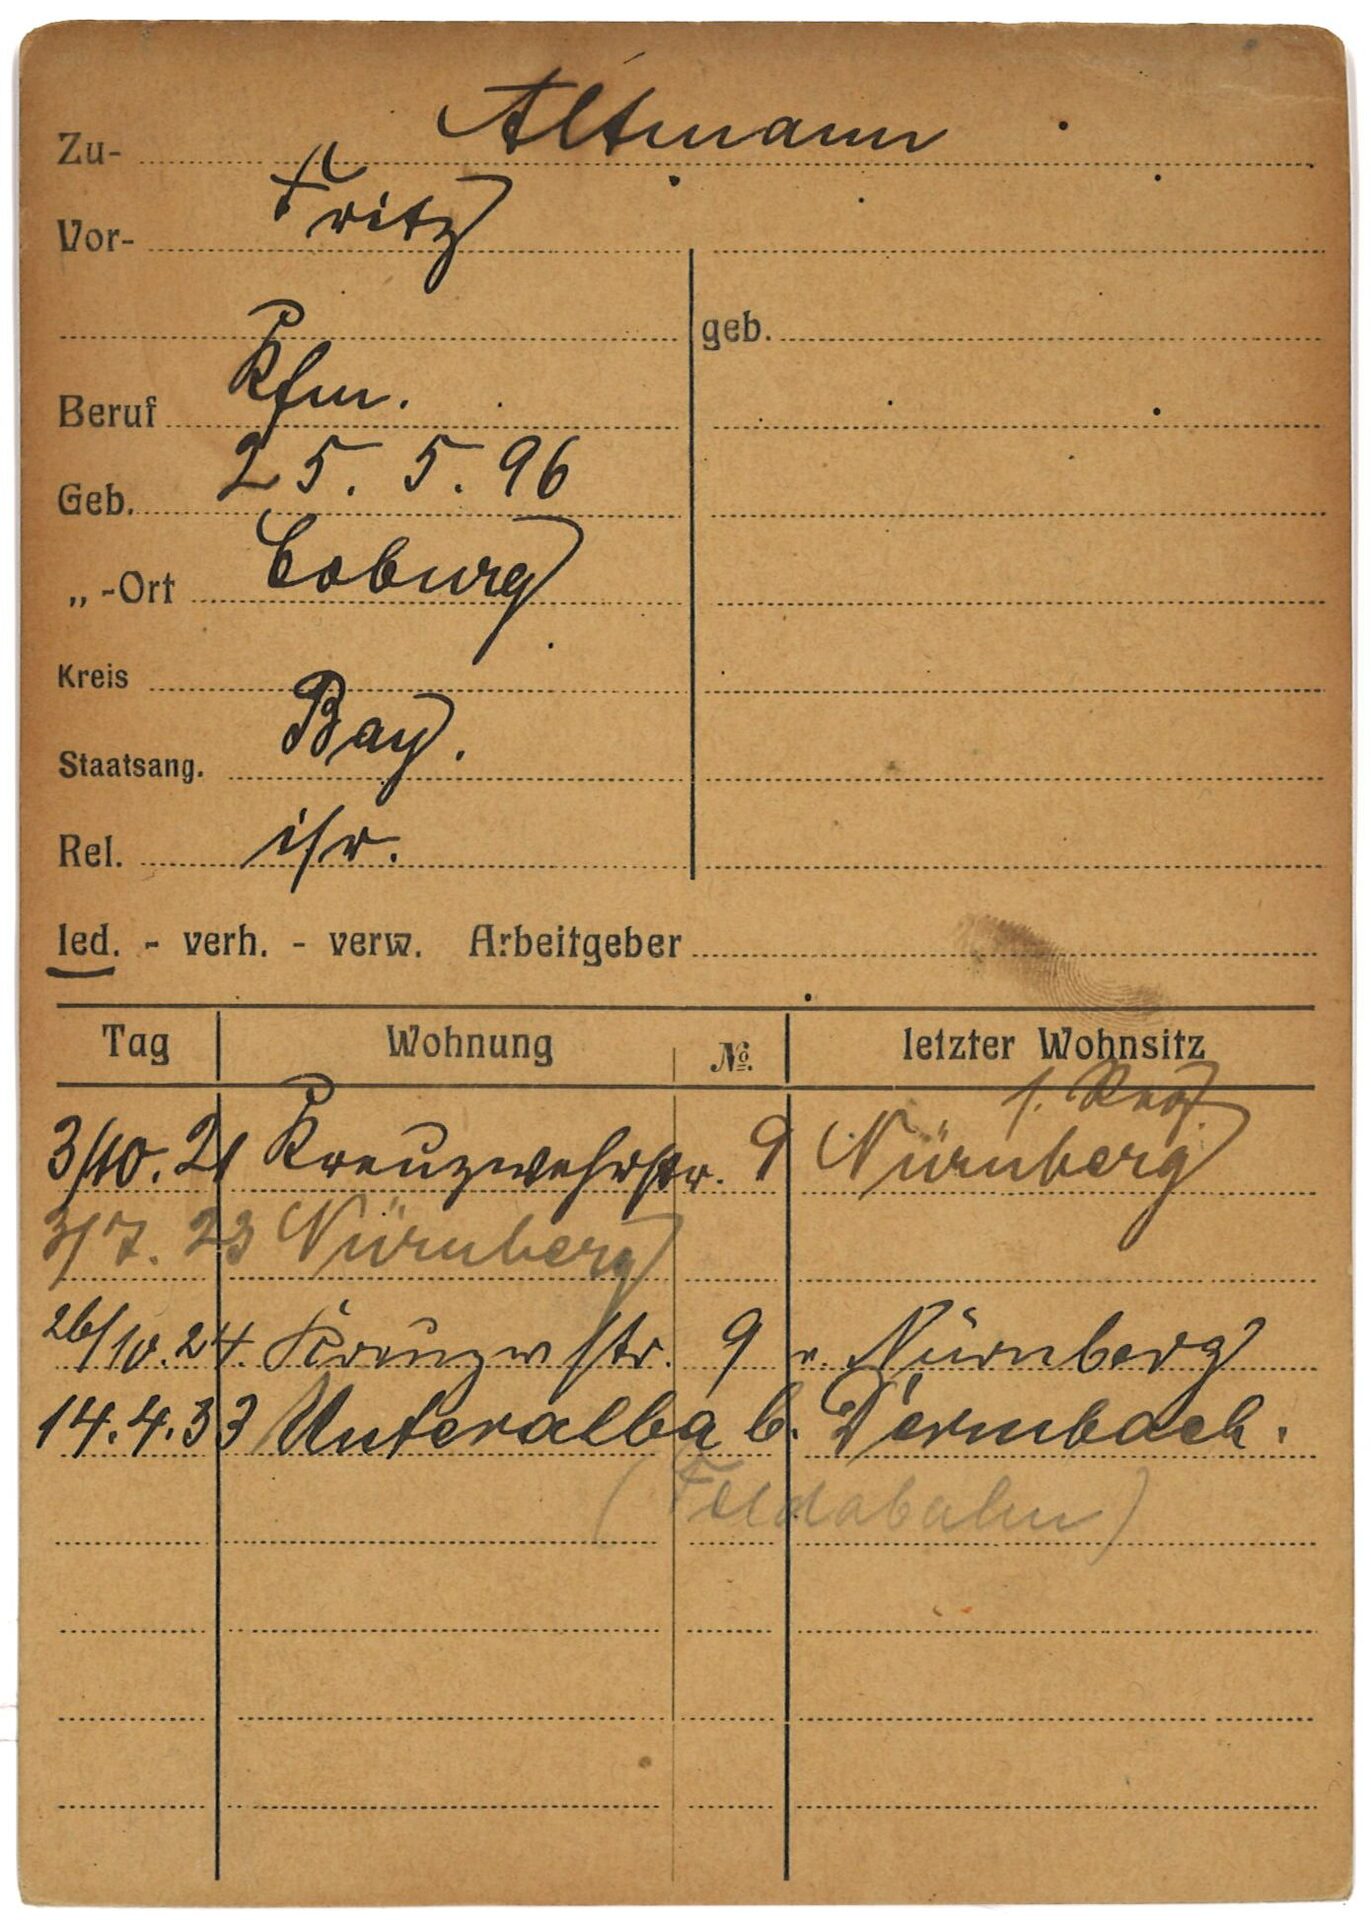 Zu- Altmann
Vor- Fritz
geb.
Beruf Kfm.
Geb. 25. 5. 96
„ -Ort Coburg
Kreis
Staatsang. Bay.
Rel. isr.
led. - verh. - verw. Arbeitgeber
Tag Wohnung No. letzter Wohnsitz
1.
3/10. 21 Kreuzwehrstr. 9 Nürnberg
3/7. 23 Nürnberg
26/10. 24. Kreuzwstr. 9 v. Nürnberg
14. 4. 33 Unteralba b. Dermbach.
(Feldabahn)